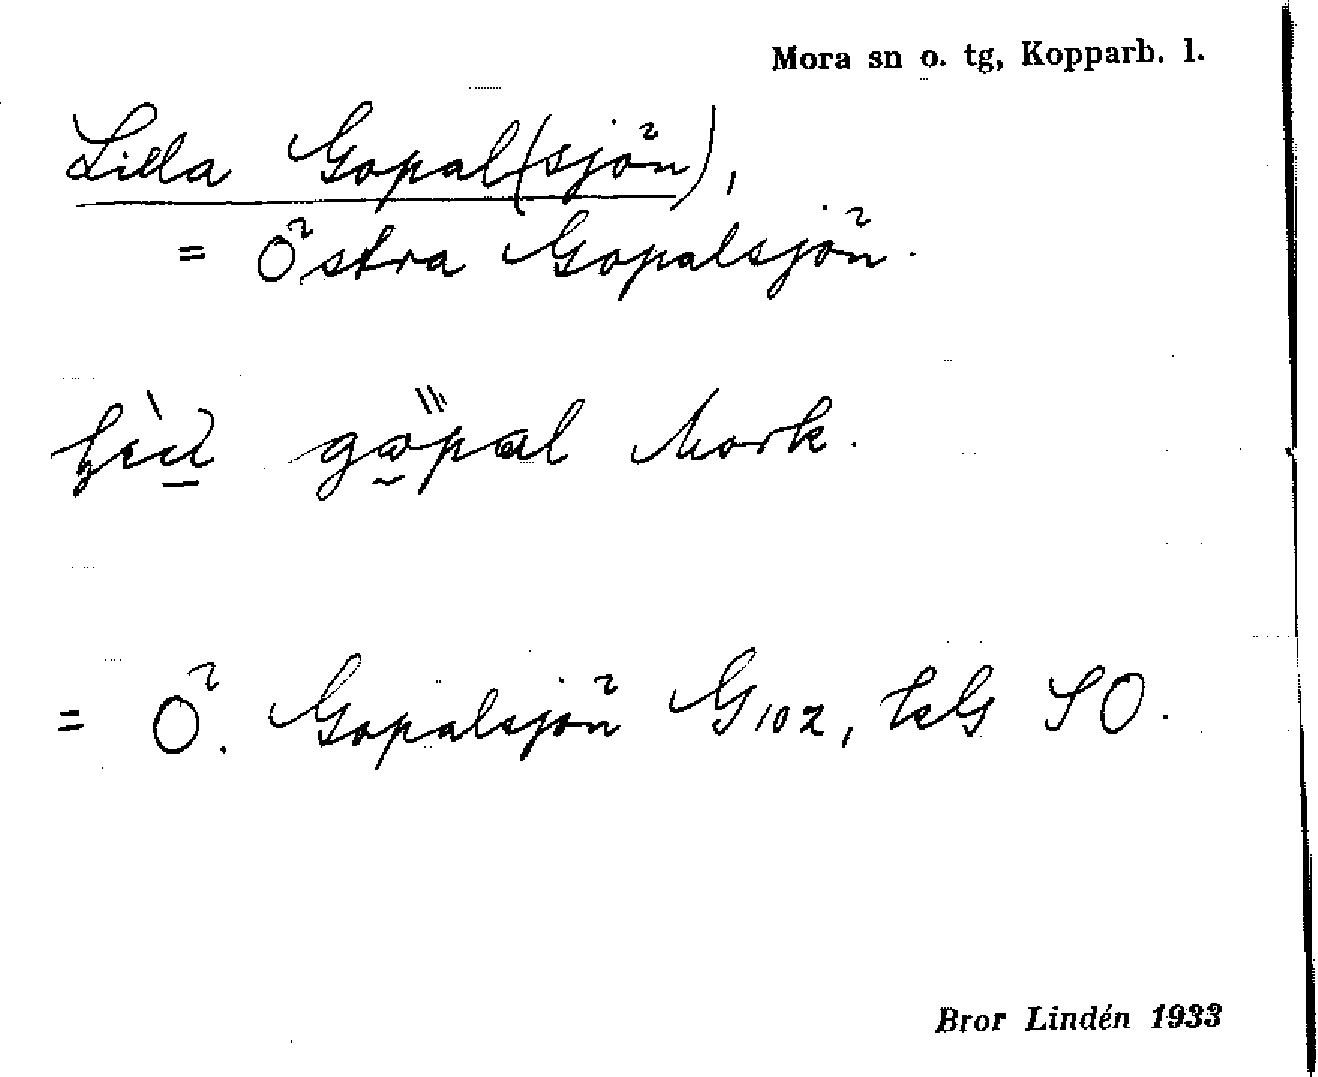 Mora sn o. tg, Kopparb. l.
Lilla Gopal(sjön),
= Östra Gopalsjön.
gopal Mork.
= Ö. Gopalsjön G102, SO.
Bror Lindén 1933